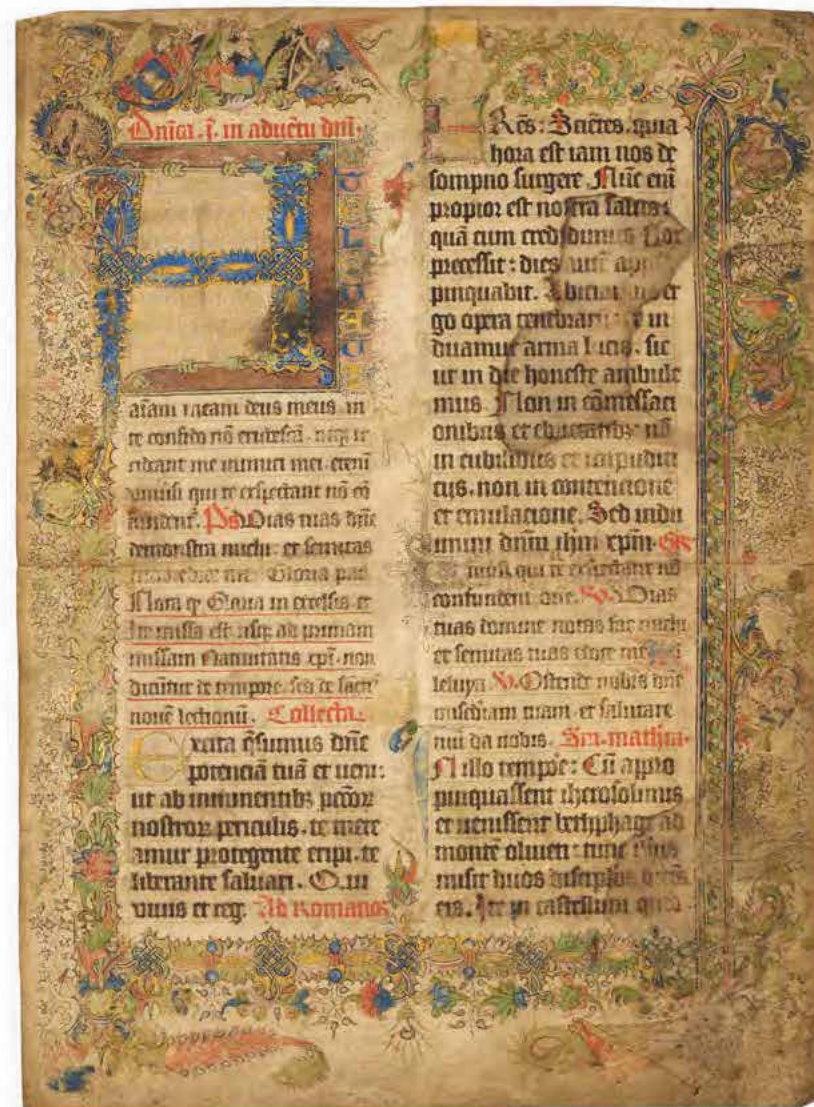 Dnica .i. in aduētu dnī.
aīam meam deus meus in
te confido nō erubescā . neqz ir
rideant me inimici mei . etenī
qui te exspectant nō cō
fundent . Ps Vias tuas dnē
demonstra michi : et semitas
Gloria pat
Nota qz Gloria in excelsis et
Ite missa est usqz ad primam
missam Natiuitatis xpī . non
dicūtur de tempore . sed de
noue lectionū . Collecta.
Excita qsumus dnē
potenciā tuā et ueni :
ut ab imminentibz pccōrz
nostrorz periculis . te mere
amur protegente eripi . te
liberante saluari . Q . ui
uiuis et reg . Ad Romanos
FRēs : Scietes . quia
hora est iam nos de
sompno surgere . Nūc eni
propior est nostra salus :
quā cum credidimus Nox
precessit : dies autē apro
pinquabit . Abiciamus er
go opera tenebrarum et in
duamur arma lucis . sic
ut in die honeste ambule
mus . Non in cōmessaci
onibus et ebrietatibz nō
in cubilibus et impudici
ciis . non in contencione
et emulacione . Sed indu
imini dnm ihm xpm . Gr
qui te exspectant nō
confundent dne . V. Vias
tuas domine notas fac michi
et semitas tuas edoce me
leluya V. Ostende nobis dnē
misediam tuam . et salutare
tuū da nobis . Scr . mathm .
IN illo tempoe : Cū appro
pinquassent iherosolimis
et uenissent bethphage ad
montē oliueti : tunc ihus
misit duos discipulos dicēs
eis . Ite in castellum quod